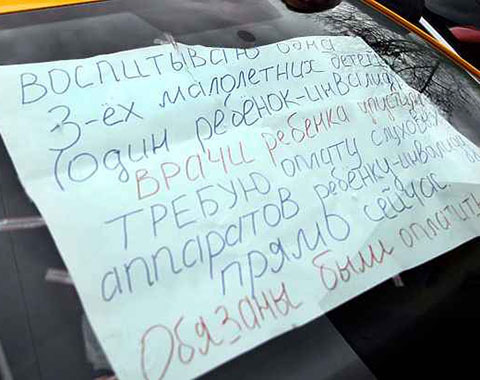 ВОСПИТЫВАЮ одна
3-ёх малолетних детей
(один ребёнок-инвалид)
ВРАЧИ ребёнка упустили
ТРЕБУЮ оплату слуховых
аппаратов ребёнку-инвалиду
прямо сейчас.
Обязаны были оплатить